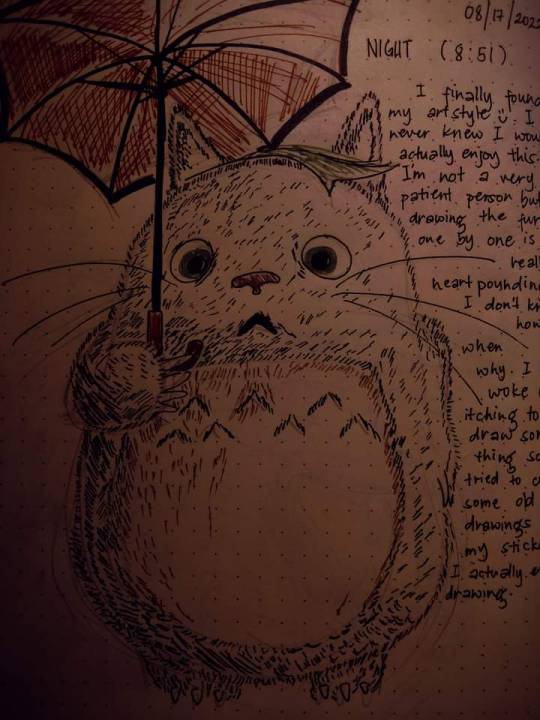 08/17/202
NIGHT (8:51)
I finally found
my artstyle I
never knew I wou
actually enjoy this.
I'm not a very
patient person but
drawing the fur
one by one is
real
heart pounding
I don't kn
how
when
why. I
woke
itching to
draw som
thing so
tried to c
some old
drawings
my stick
I actually e
drawing.